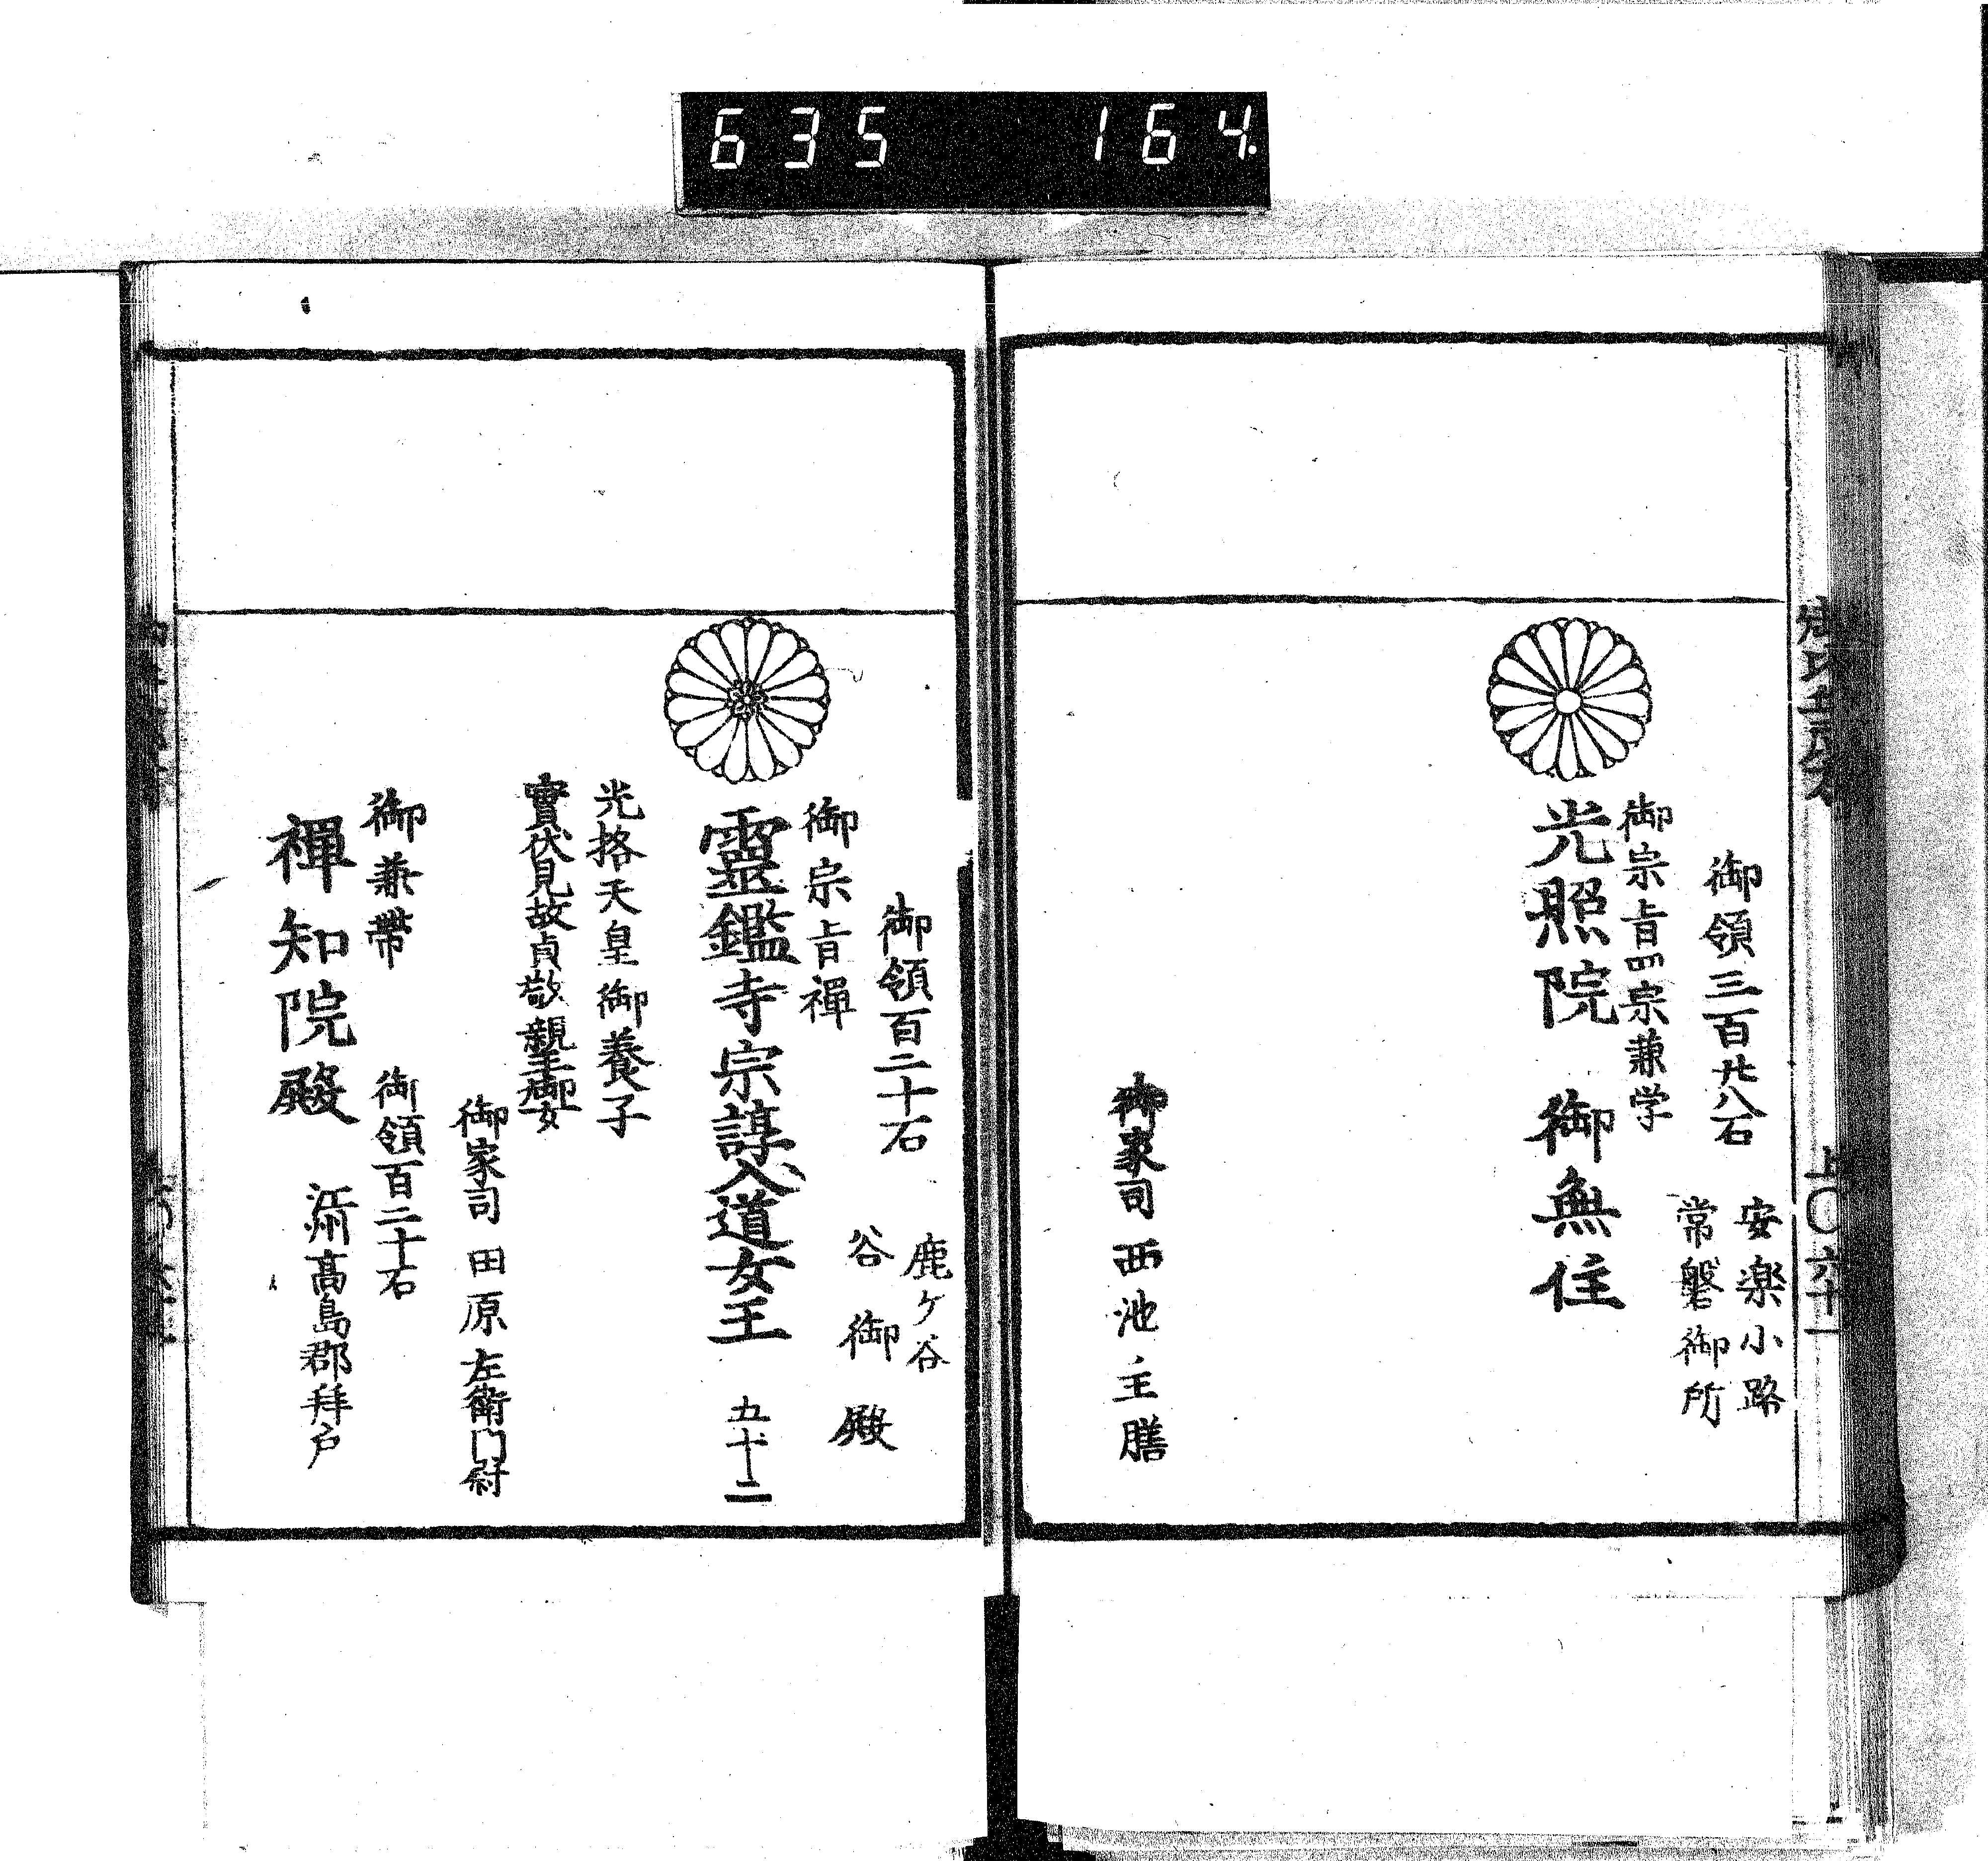 635 164.
上〇六十一
御領三百廿八石
安楽小路
常磐御所
御宗旨四宗兼学
光照院 御無住
御家司 西池主膳
御領百二十石
鹿ケ谷
谷御殿
御宗旨禪
靈鑑寺宗諄入道女王 五十二
光格天皇御養子
實伏見故貞敬親王御女
御家司 田原左衛門尉
御兼帶
御領百二十石
禪知院殿 江州高島郡拜戸